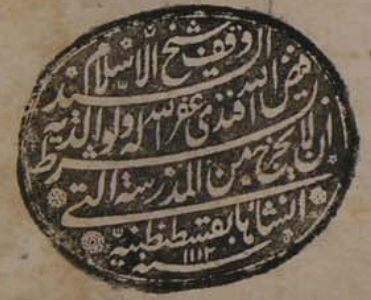 وقف شيخ الاسلام السيد
فيض الله افندى غفر الله له ولوالديه
بشرط ان لا يخرج من المدرسة التى
انشاها بقسطنطينية
سنة ١١١٣